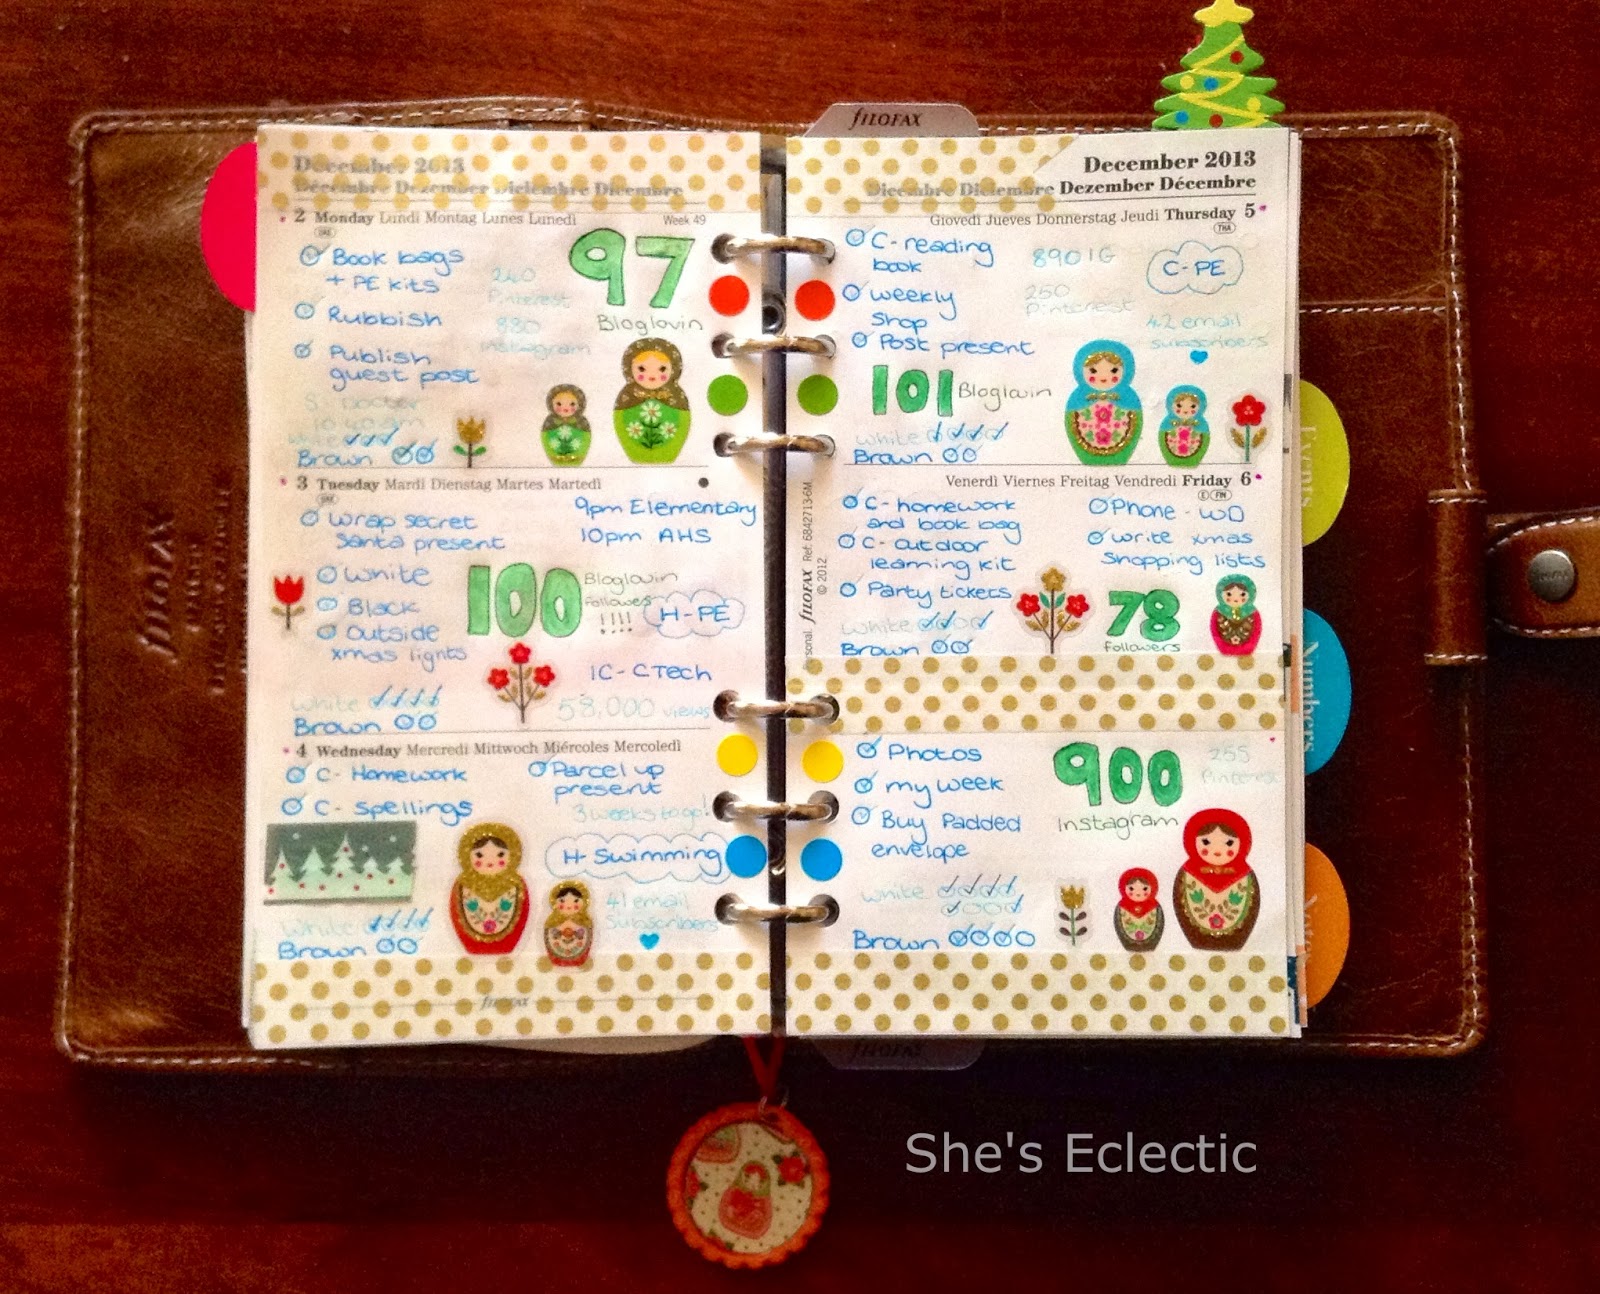 FILOFAX
December 2013
Décembre Dezember Diciembre Dicembre
2 Monday Lundi Montag Lunes Lunedì
Week 49
UAE
Book bags
+ PE kits
Rubbish
Publish
guest post
240
Pinterest
880
Instagram
97
Bloglovin
S. Doctor
10.40am
White
Brown
3 Tuesday Mardi Dienstag Martes Martedì
UAE
Wrap secret
Santa present
White
Black
Outside
xmas lights
9pm Elementary
10pm AHS
100
Bloglovin
followers
!!!!
H-PE
IC-CTech
58,000 views
White
Brown
4 Wednesday Mercredi Mittwoch Miércoles Mercoledì
C- Homework
C- Spellings
Parcel up
present
3 weeks to go!
H-Swimming
41 email
Subscribers
White
Brown
FILOFAX
FILOFAX
December 2013
Dicembre Diciembre Dezember Décembre
Giovedì Jueves Donnerstag Jeudi Thursday 5
THA
C-reading
book
weekly
Shop
Post present
890 IG
250
Pinterest
C-PE
42 email
subscribers
101
Bloglovin
White
Brown
Venerdì Viernes Freitag Vendredi Friday 6
E FIN
C-homework
and book bag
C-outdoor
learning kit
Party tickets
Phone - WD
write xmas
Shopping lists
78
followers
White
Brown
Personal. FILOFAX Ref: 6842713-6M
© 2012.
Photos
my week
Buy Padded
envelope
900
Instagram
255
Pinterest
White
Brown
Events
Numbers
FILOFAX
She's Eclectic